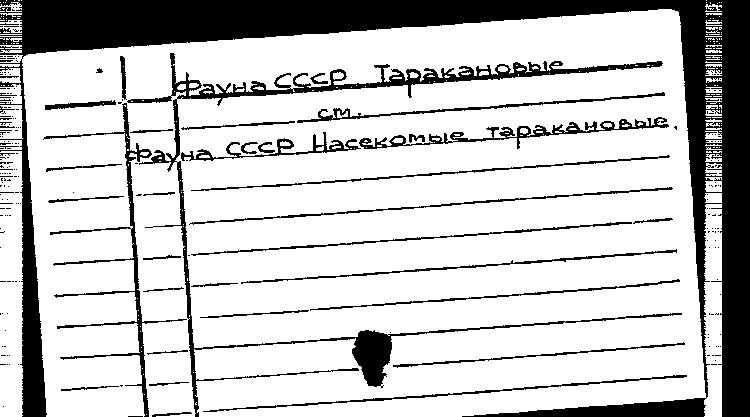 Фауна СССР Таракановые
см.
Фауна СССР Насекомые таракановые.